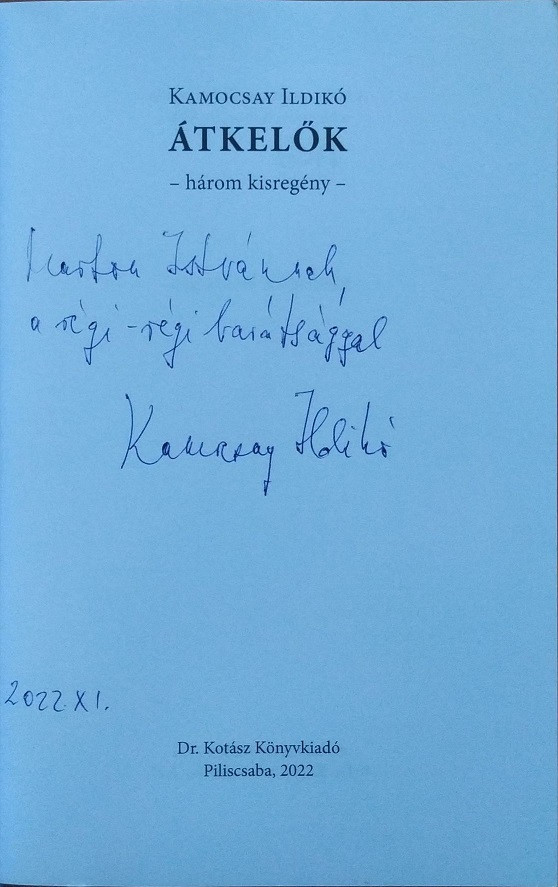 KAMOCSAY ILDIKÓ
ÁTKELŐK
– három kisregény –
Marton Istvánnak,
a régi-régi barátsággal
Kamocsay Ildikó
2022. XI.
Dr. Kotász Könyvkiadó
Piliscsaba, 2022